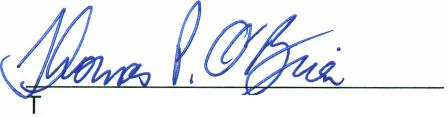 Thomas P. O'Brien
T